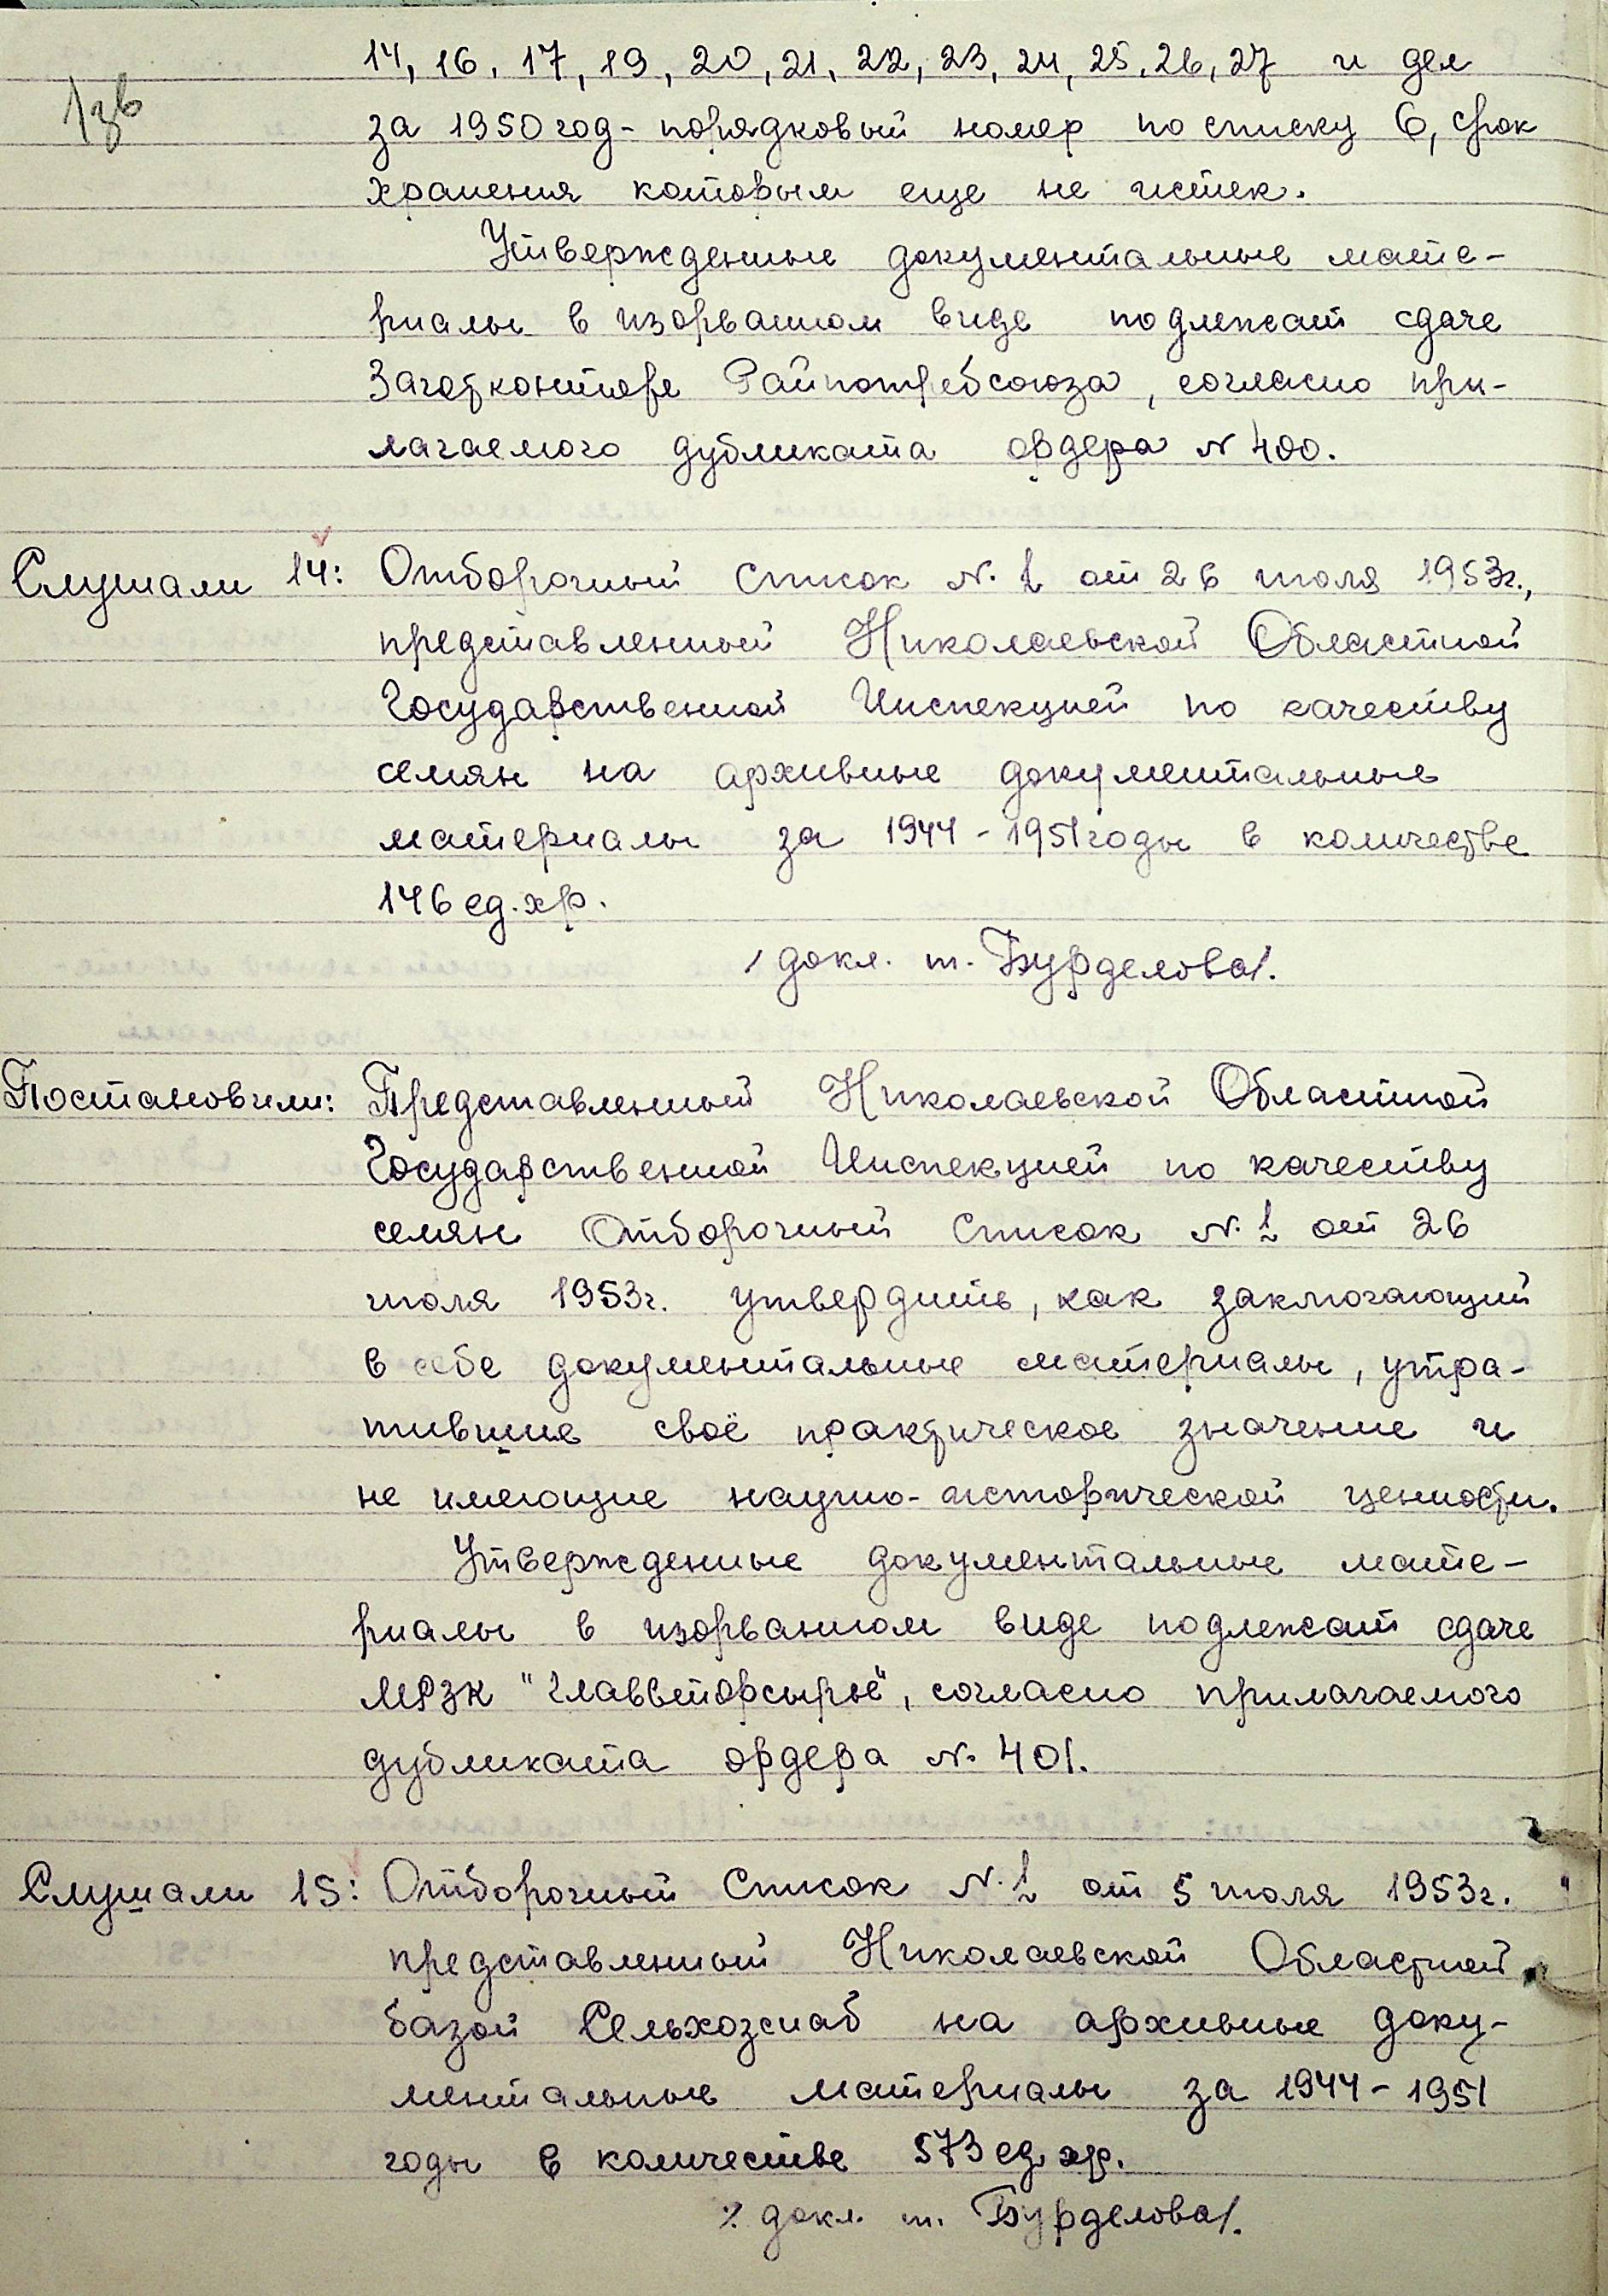 14, 16, 17, 19, 20, 21, 22, 23, 24, 25, 26, 27 и дел
за 1950 год - порядковый номер по списку 6, срок
хранения которым еще не истек.
Утвержденные документальные мате-
риалы в изорванном виде подлежат сдаче
Заготконторе Райпотребсоюза, согласно при-
лагаемого дубликата ордера N 400.
Слушали 14: Отборочный список N. 1 от 26 июля 1953г.,
представленный Николаевской Областной
Государственной Инспекцией по качеству
семян на архивные документальные
материалы за 1944-1951 годы в количестве
146 ед. хр.
/докл. т. Бурделова/.
Постановили: Представленный Николаевской Областной
Государственной Инспекцией по качеству
семян Отборочный список N. 1 от 26
июля 1953г. утвердить, как заключающий
в себе документальные материалы, утра-
тившие своё практическое значение и
не имеющие научно-исторической ценности.
Утвержденные документальные мате-
риалы в изорванном виде подлежат сдаче
МРЗК "Главвторсырьё", согласно прилагаемого
дубликата ордера N. 401.
Слушали 15: Отборочный список N. 1 от 5 июля 1953г.
представленный Николаевской Областной
базой Сельхозснаб на архивные доку-
ментальные материалы за 1944-1951
годы в количестве 573 ед. хр.
/докл. т. Бурделова/.